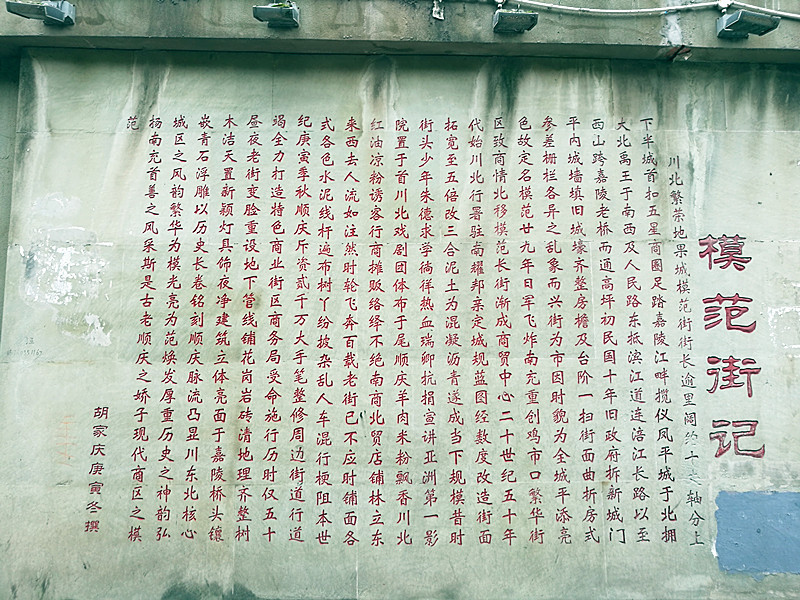 模范街记
川北繁荣地果城模范街街长逾里阔约十之轴分上
下半城首扣五星商圈足踏嘉陵江畔揽仪凤平城于北拥
大北禹王于南西及人民路东抵滨江道连涪江长路以至
西山跨嘉陵老桥而通高坪初民国十年旧政府拆新城门
平内城墙填旧城壕齐整房檐及台阶一扫街面曲折房式
参差栅栏各异之乱象而兴街为市因时貌为全城平添亮
色故定名模范廿九年日军飞炸南充重创鸡市口繁华街
区致商情北移模范长街渐成商贸中心二十世纪五十年
代始川北行署驻南耀邦亲定城规蓝图经数度改造街面
拓宽至五倍改三合泥土为混凝沥青遂成当下规模昔时
街头少年朱德求学徜徉热血瑞卿抗捐宣讲亚洲第一影
院置于首川北戏剧团体布于尾顺庆羊肉米粉飘香川北
红油凉粉诱客行商摊贩络绎不绝南商北贸店铺林立东
来西去人流如注然时轮飞奔百载老街已不应时铺面各
式各色水泥线杆遍布树丫纷披杂乱人车混行梗阻本世
纪庚寅季秋顺庆斥资贰千万大手笔整修周边街道行道
竭全力打造特色商业街区商务局受命施行历时仅五十
昼夜老街变脸重设地下管线铺花岗岩砖清地理齐整树
木洁天置新颖灯具饰夜净建筑立体亮面于嘉陵桥头镶
嵌青石浮雕以历史长卷铭刻顺庆脉流凸显川东北核心
城区之风韵繁华为模光亮为范焕发厚重历史之神韵弘
扬南充首善之风采斯是古老顺庆之娇子现代商区之模
范
胡家庆庚寅冬撰